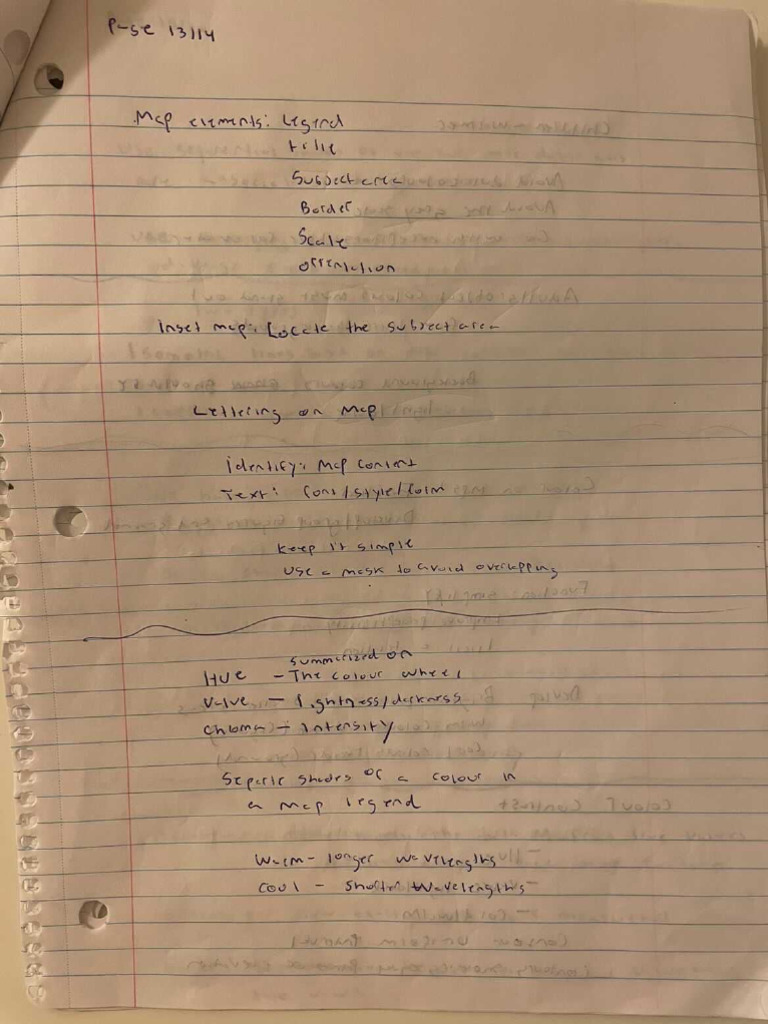 Page 13/14
Map elements: Legend
title
Subject area
Border
Scale
orientation
Inset map: Locate the subject area
Lettering on Map
identify: Map content
Text: font/style/form
keep it simple
use a mask to avoid overlapping
summarized on
Hue - The colour wheel
Value - lightness/darkness
Chroma - intensity
Separate shades of a colour in
a map legend
Warm - longer wavelengths
Cool - shorter wavelengths